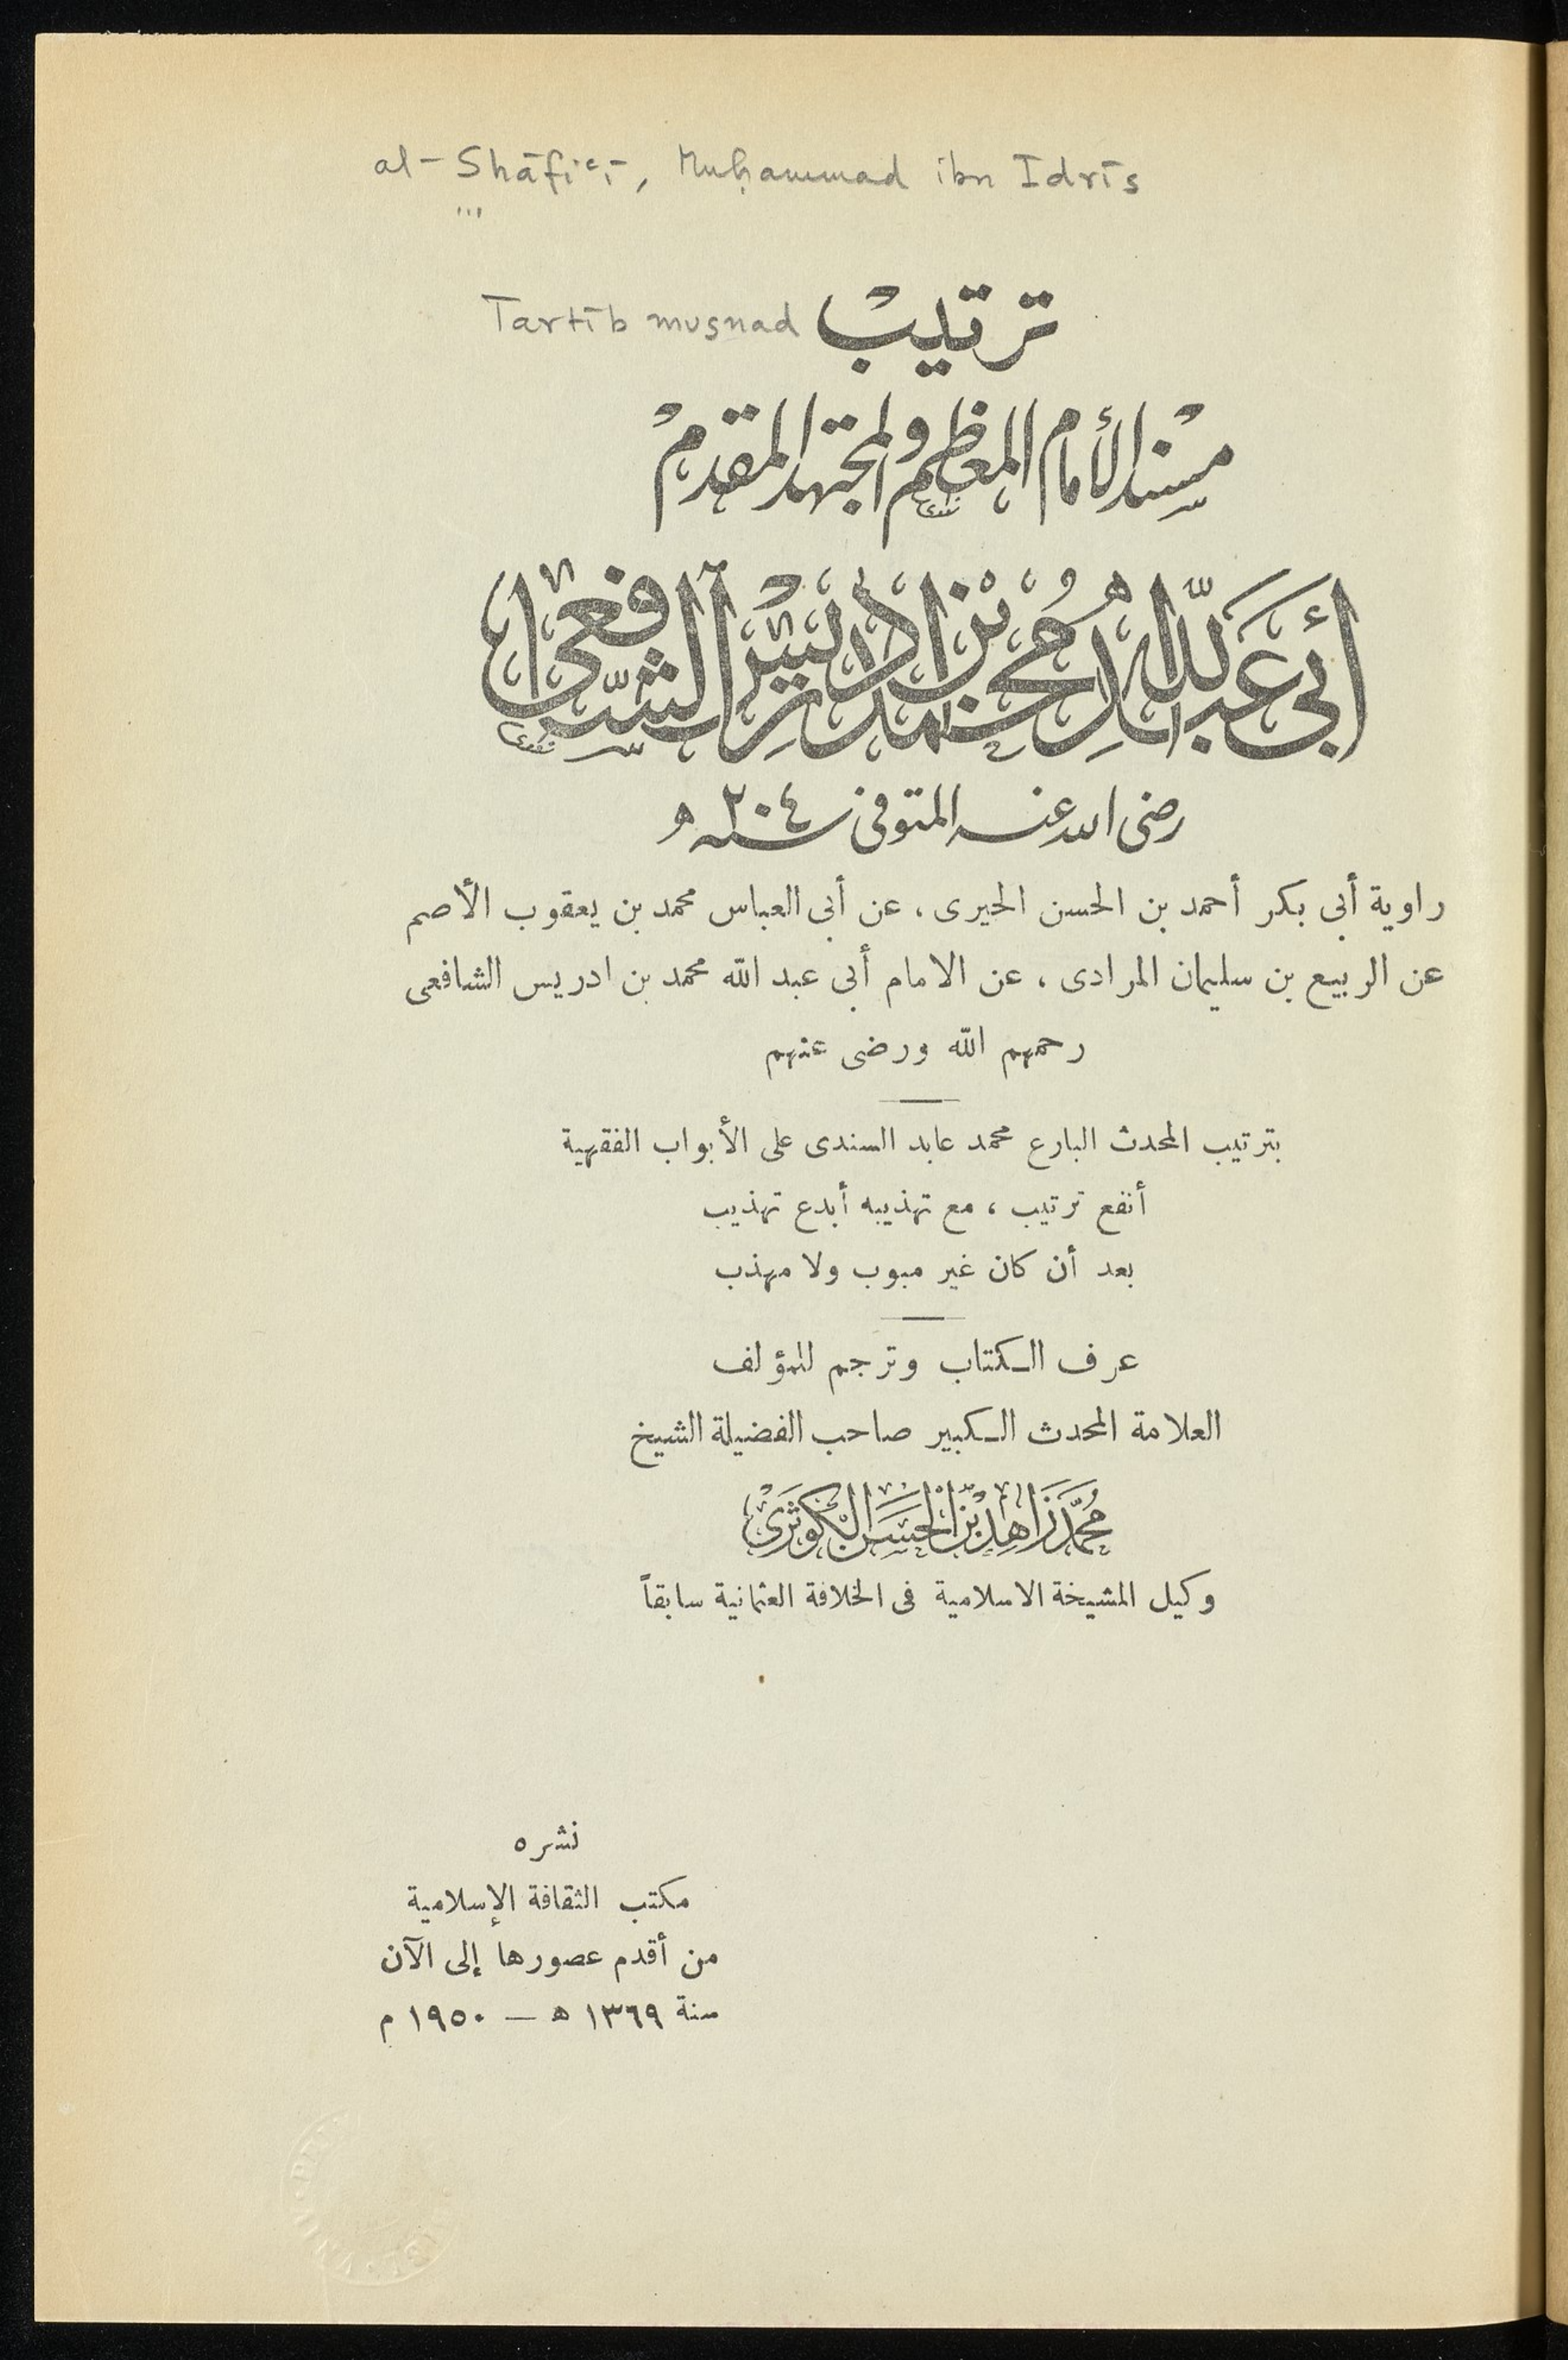 al-Shāfiʿī, Muḥammad ibn Idrīs
ترتيب Tartīb musnad
مسند الأمام المعظم والمجتهد المقدم
أبي عبد الله محمد بن ادريس الشافعي
رضى الله عنه المتوفى سنة ٢٠٤ ه
راوية أبى بكر أحمد بن الحسن الحيرى ، عن أبى العباس محمد بن يعقوب الأصم
عن الربيع بن سليمان المرادى ، عن الامام أبى عبد الله محمد بن ادريس الشافعى
رحمهم الله ورضى عنهم
بترتيب المحدث البارع محمد عابد السندى على الأبواب الفقهية
أنفع ترتيب ، مع تهذيبه أبدع تهذيب
بعد أن كان غير مبوب ولا مهذب
عرف الكتاب وترجم للمؤلف
العلامة المحدث الكبير صاحب الفضيلة الشيخ
مُحَمَّد زَاهِد بْن الْحَسَن الْكَوْثَرِى
وكيل المشيخة الاسلامية فى الخلافة العثمانية سابقاً
نشره
مكتب الثقافة الإسلامية
من أقدم عصورها إلى الآن
سنة ١٣٦٩ ه — ١٩٥٠ م